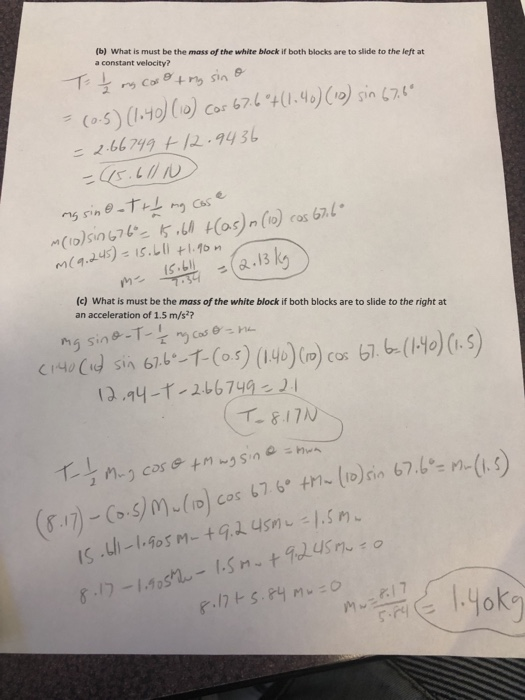 (b) What is must be the mass of the white block if both blocks are to slide to the left at
a constant velocity?
T = 1/2 mg cos θ + mg sin θ
= (0.5) (1.40) (10) cos 67.6° + (1.40) (10) sin 67.6°
= 2.66749 + 12.9436
= 15.611 N
mg sin θ = T + 1/2 mg cos θ
m(10) sin 67.6° = 15.611 + (0.5) m (10) cos 67.6°
m(9.245) = 15.611 + 1.90 m
m = 15.611 / 7.34 = 2.13 kg
(c) What is must be the mass of the white block if both blocks are to slide to the right at
an acceleration of 1.5 m/s²?
mg sin θ - T - 1/2 mg cos θ = ma
(1.40) (10) sin 67.6° - T - (0.5) (1.40) (10) cos 67.6 = (1.40) (1.5)
12.94 - T - 2.66749 = 2.1
T = 8.17 N
T - 1/2 Mwg cos θ + Mwg sin θ = Mwa
(8.17) - (0.5) Mw (10) cos 67.6° + Mw (10) sin 67.6° = Mw (1.5)
15.611 - 1.905 Mw + 9.245 Mw = 1.5 Mw
8.17 - 1.905 Mw - 1.5 Mw + 9.245 Mw = 0
8.17 + 5.84 Mw = 0
Mw = 8.17 / 5.84 = 1.40 kg